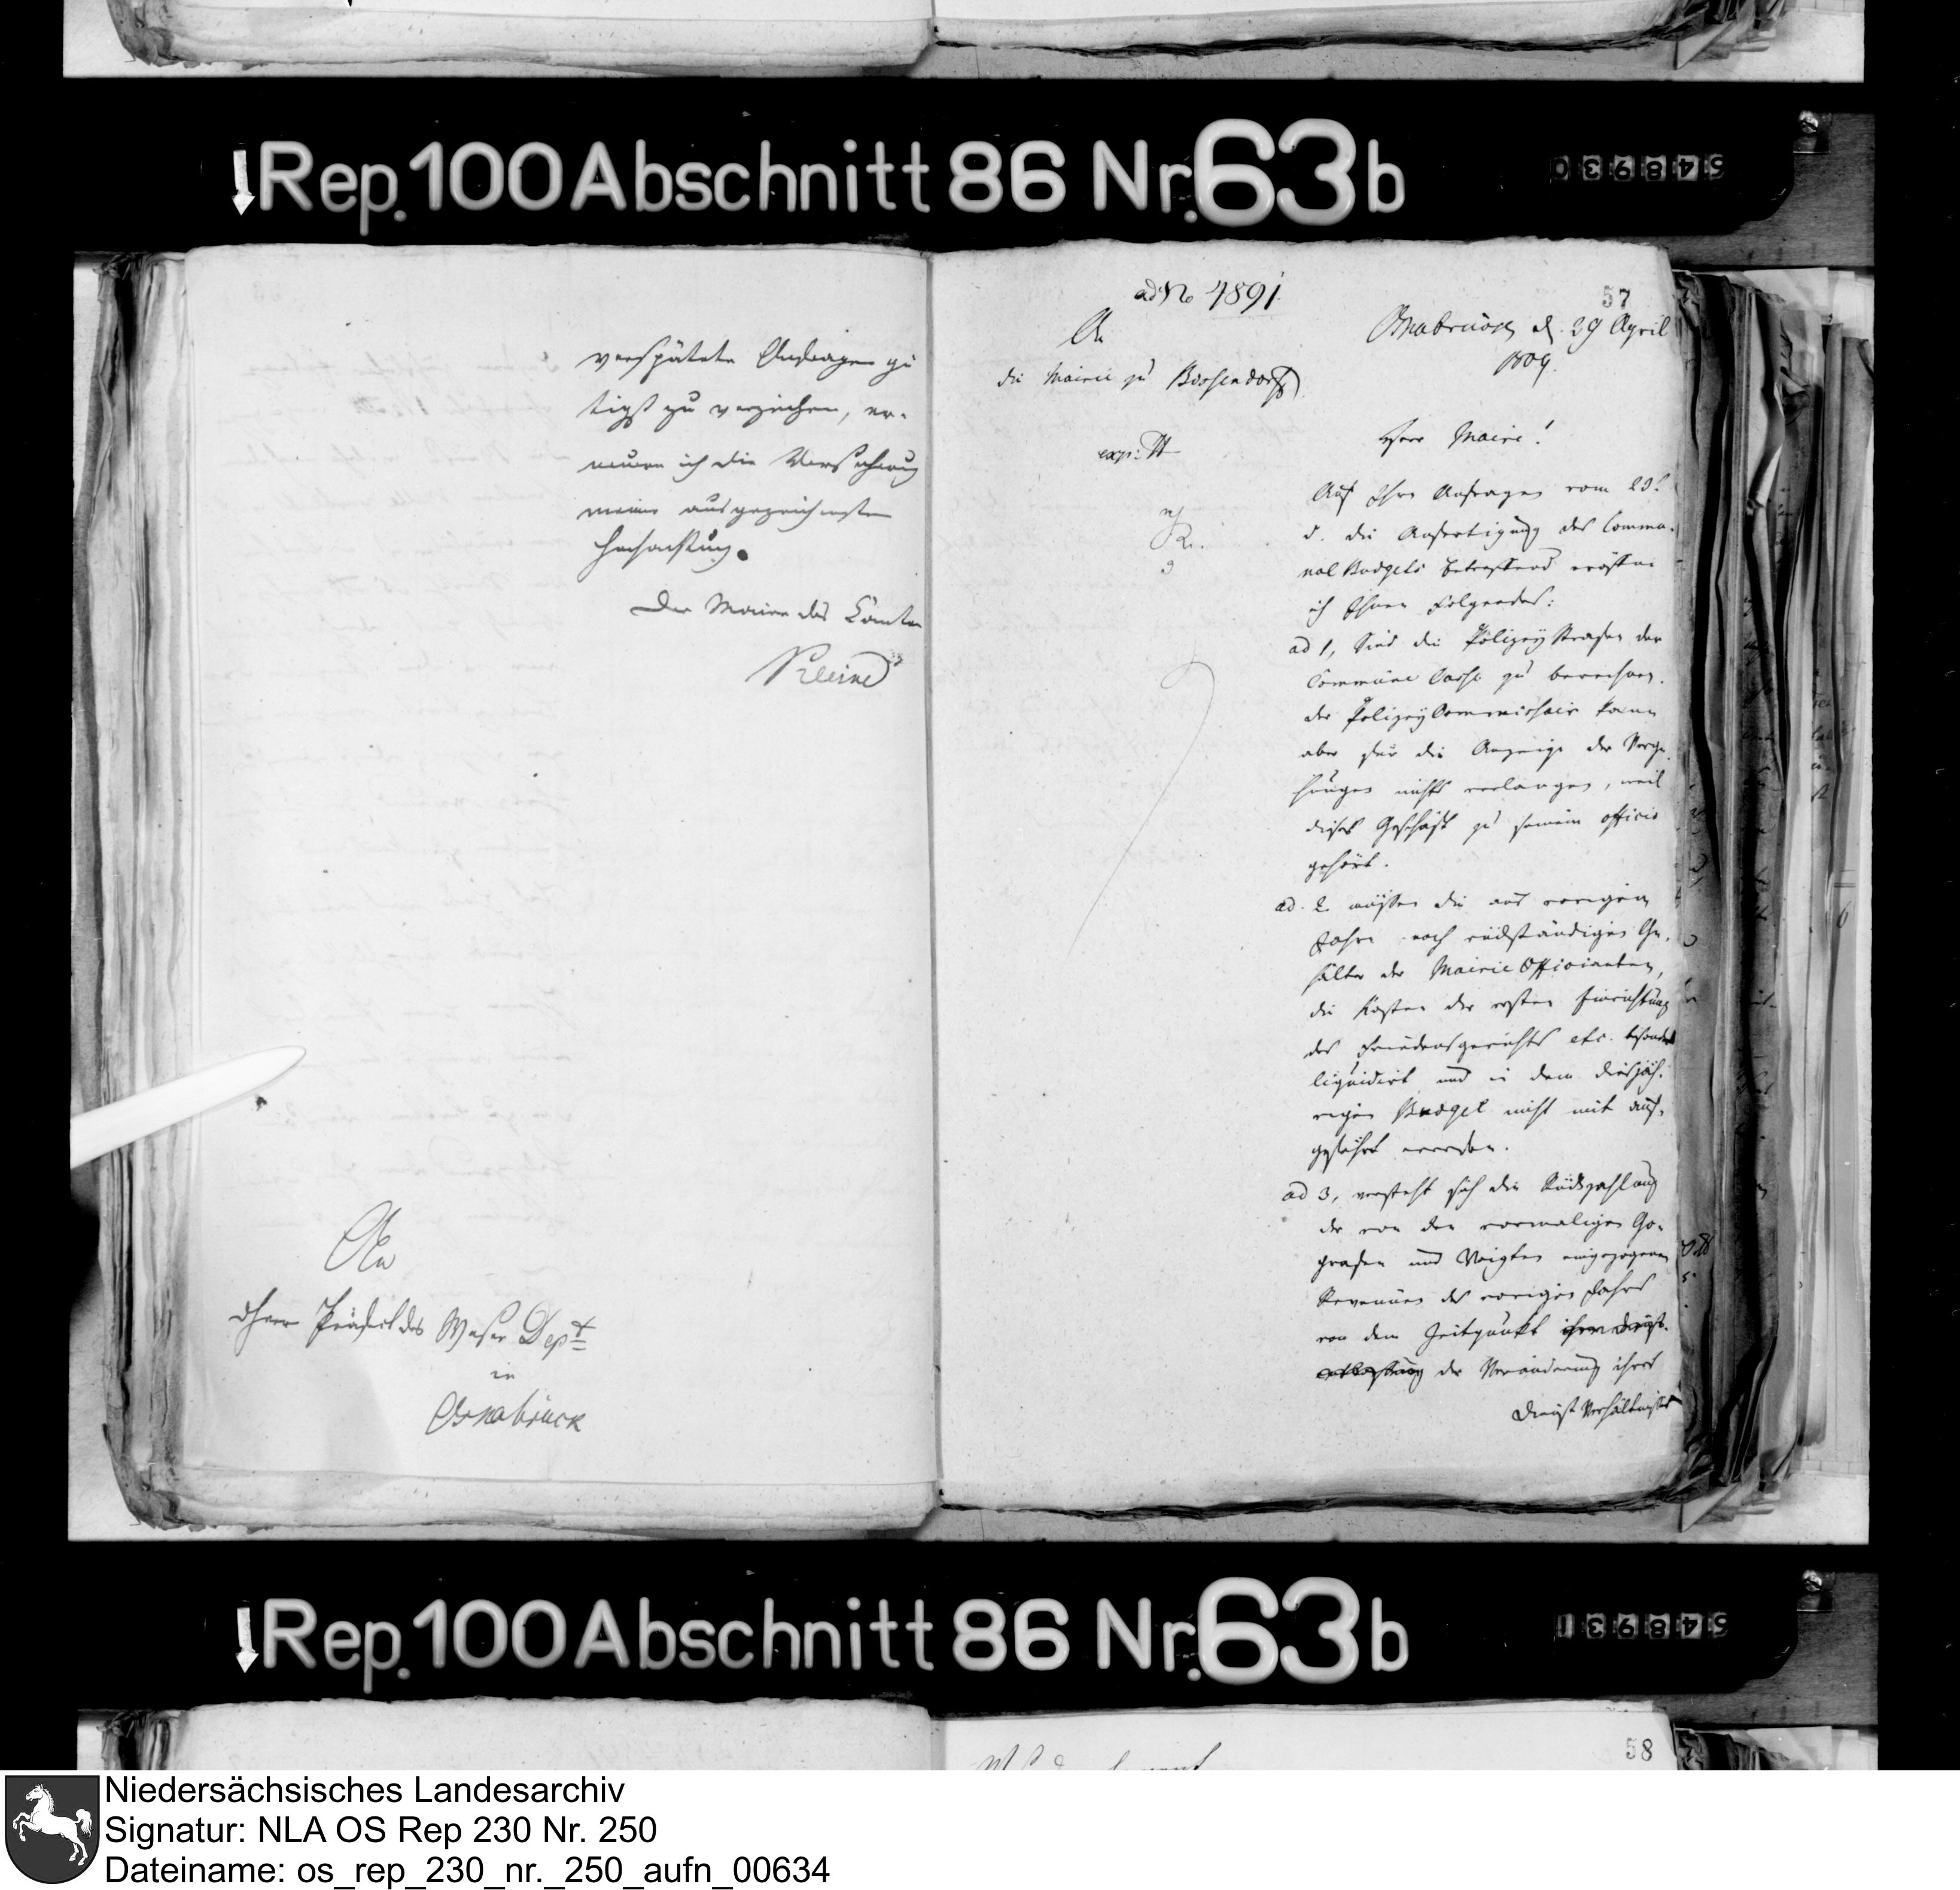 Rep. 100 Abschnitt 86 Nr. 63 b
548930
verspätete Anfragen gü-
tigst zu verzeihen, er-
neuere ich die Versicherung
meiner ausgezeichneten
Hochachtung.
Der Maire des Canton
Kleine
An
Herrn Präfect des Weser Dept
in
Osnabrück
57
ad No 4891.
An
die Mairie zu Bissendorff
exp:
Osnabrück d. 29 April
1809.
Herr Maire!
Auf Ihre Anfragen vom 23t
d. die Anfertigung des Commu-
nal Budgets betreffend eröffne
ich Ihnen Folgendes:
ad 1, Sind die Polizey Strafen der
Commüne Casse zu berechnen.
der Polizey Commissair kann
aber für die Anzeige der Verge-
hungen nichts verlangen, weil
dieses Geschäft zu seinem officio
gehört.
ad. 2 müssen die aus vorigem
Jahre noch rückständigen Ge-
hälter der Mairie Officianten,
die Kosten der ersten Einrichtung
des Friedensgerichts etc. besonders
liquidirt und in dem diesjäh-
rigen Budget nicht mit auf-
geführt werden.
ad 3, versteht sich die Rückzahlung
der von den vormaligen Go-
grafen und Voigten eingezogenen
Revenüen des vorigen Jahres
von dem Zeitpunkt ihrer Dienst-
entlassung der Veränderung ihres
Dienst Verhältnisses
Rep. 100 Abschnitt 86 Nr. 63 b
548931
58
Niedersächsisches Landesarchiv
Signatur: NLA OS Rep 230 Nr. 250
Dateiname: os_rep_230_nr._250_aufn_00634